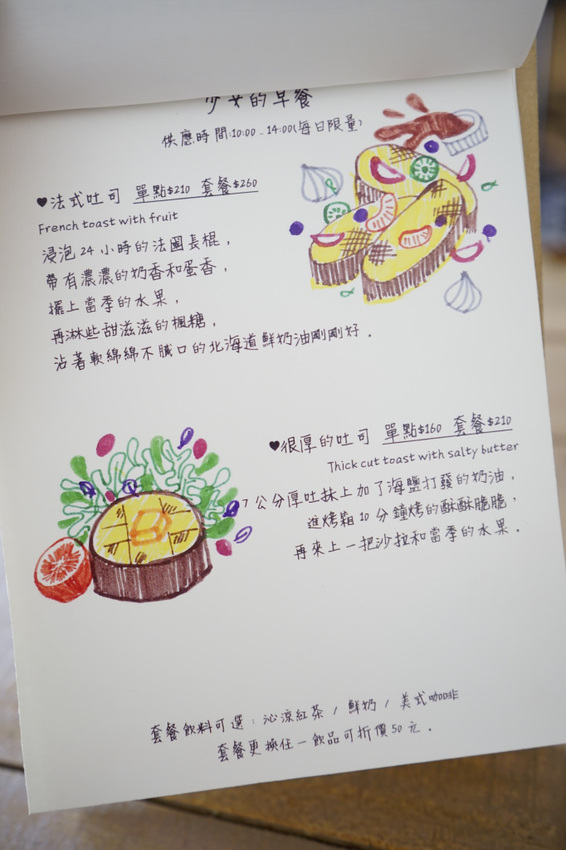 少女的早餐
供應時間:10:00-14:00(每日限量)
♥法式吐司 單點$210 套餐$260
French toast with fruit
浸泡24小時的法國長棍,
帶有濃濃的奶香和蛋香,
擺上當季的水果,
再淋些甜滋滋的楓糖,
沾著軟綿綿不膩口的北海道鮮奶油剛剛好.
♥很厚的吐司 單點$160 套餐$210
Thick cut toast with salty butter
7公分厚吐抹上加了海鹽打發的奶油,
進烤箱10分鐘烤的酥酥脆脆,
再來上一把沙拉和當季的水果.
套餐飲料可選:沁涼紅茶/鮮奶/美式咖啡
套餐更換任一飲品可折價50元.